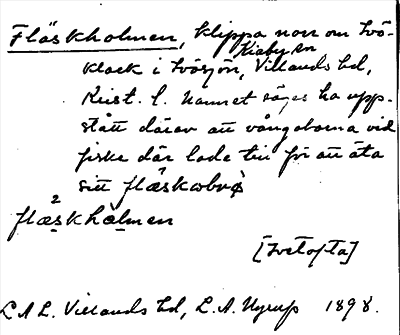 Fläskholmen, klippa norr om Ivö-
Kiaby sn,
klack i Ivösjön, Villands hd,
Krist. l. Namnet säges ha upp-
stått därav att vångaborna vid
fiske där lade till för att äta
sitt flæskabrø
flæskhålmen
[Ivetofta]
L.A.L. Villands hd, L.A. Nyrup 1898.